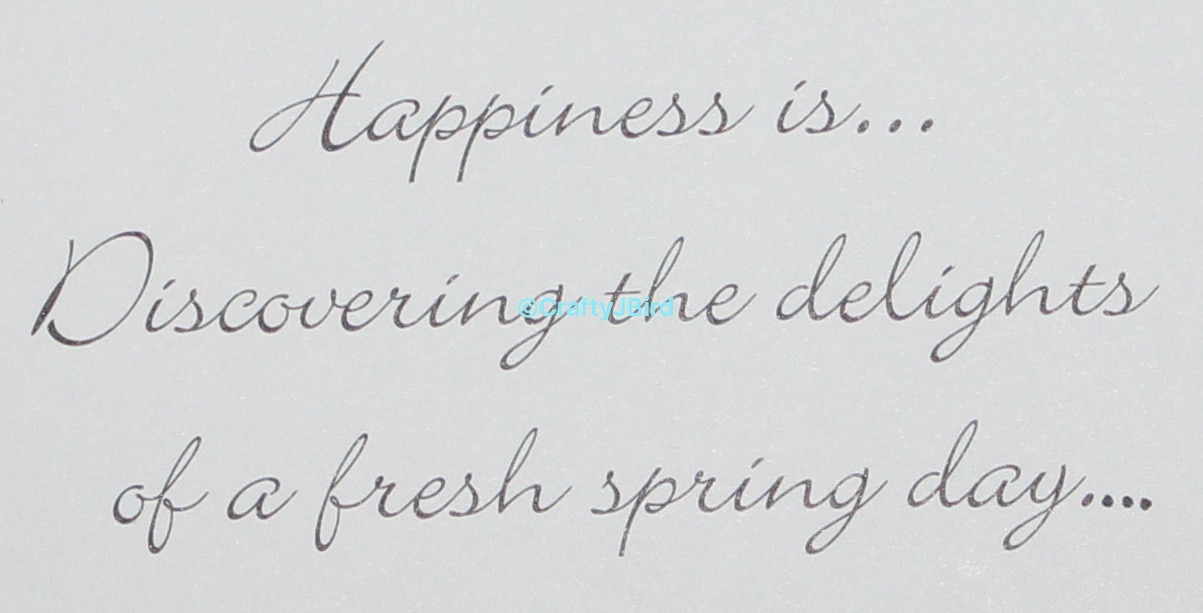 Happiness is...
Discovering the delights
©CraftyJBird
of a fresh spring day....